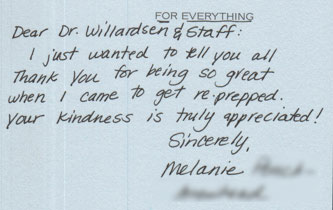 FOR EVERYTHING
Dear Dr. Willardsen & Staff:
I just wanted to tell you all
Thank you for being so great
when I came to get re-prepped.
Your kindness is truly appreciated!
Sincerely,
Melanie